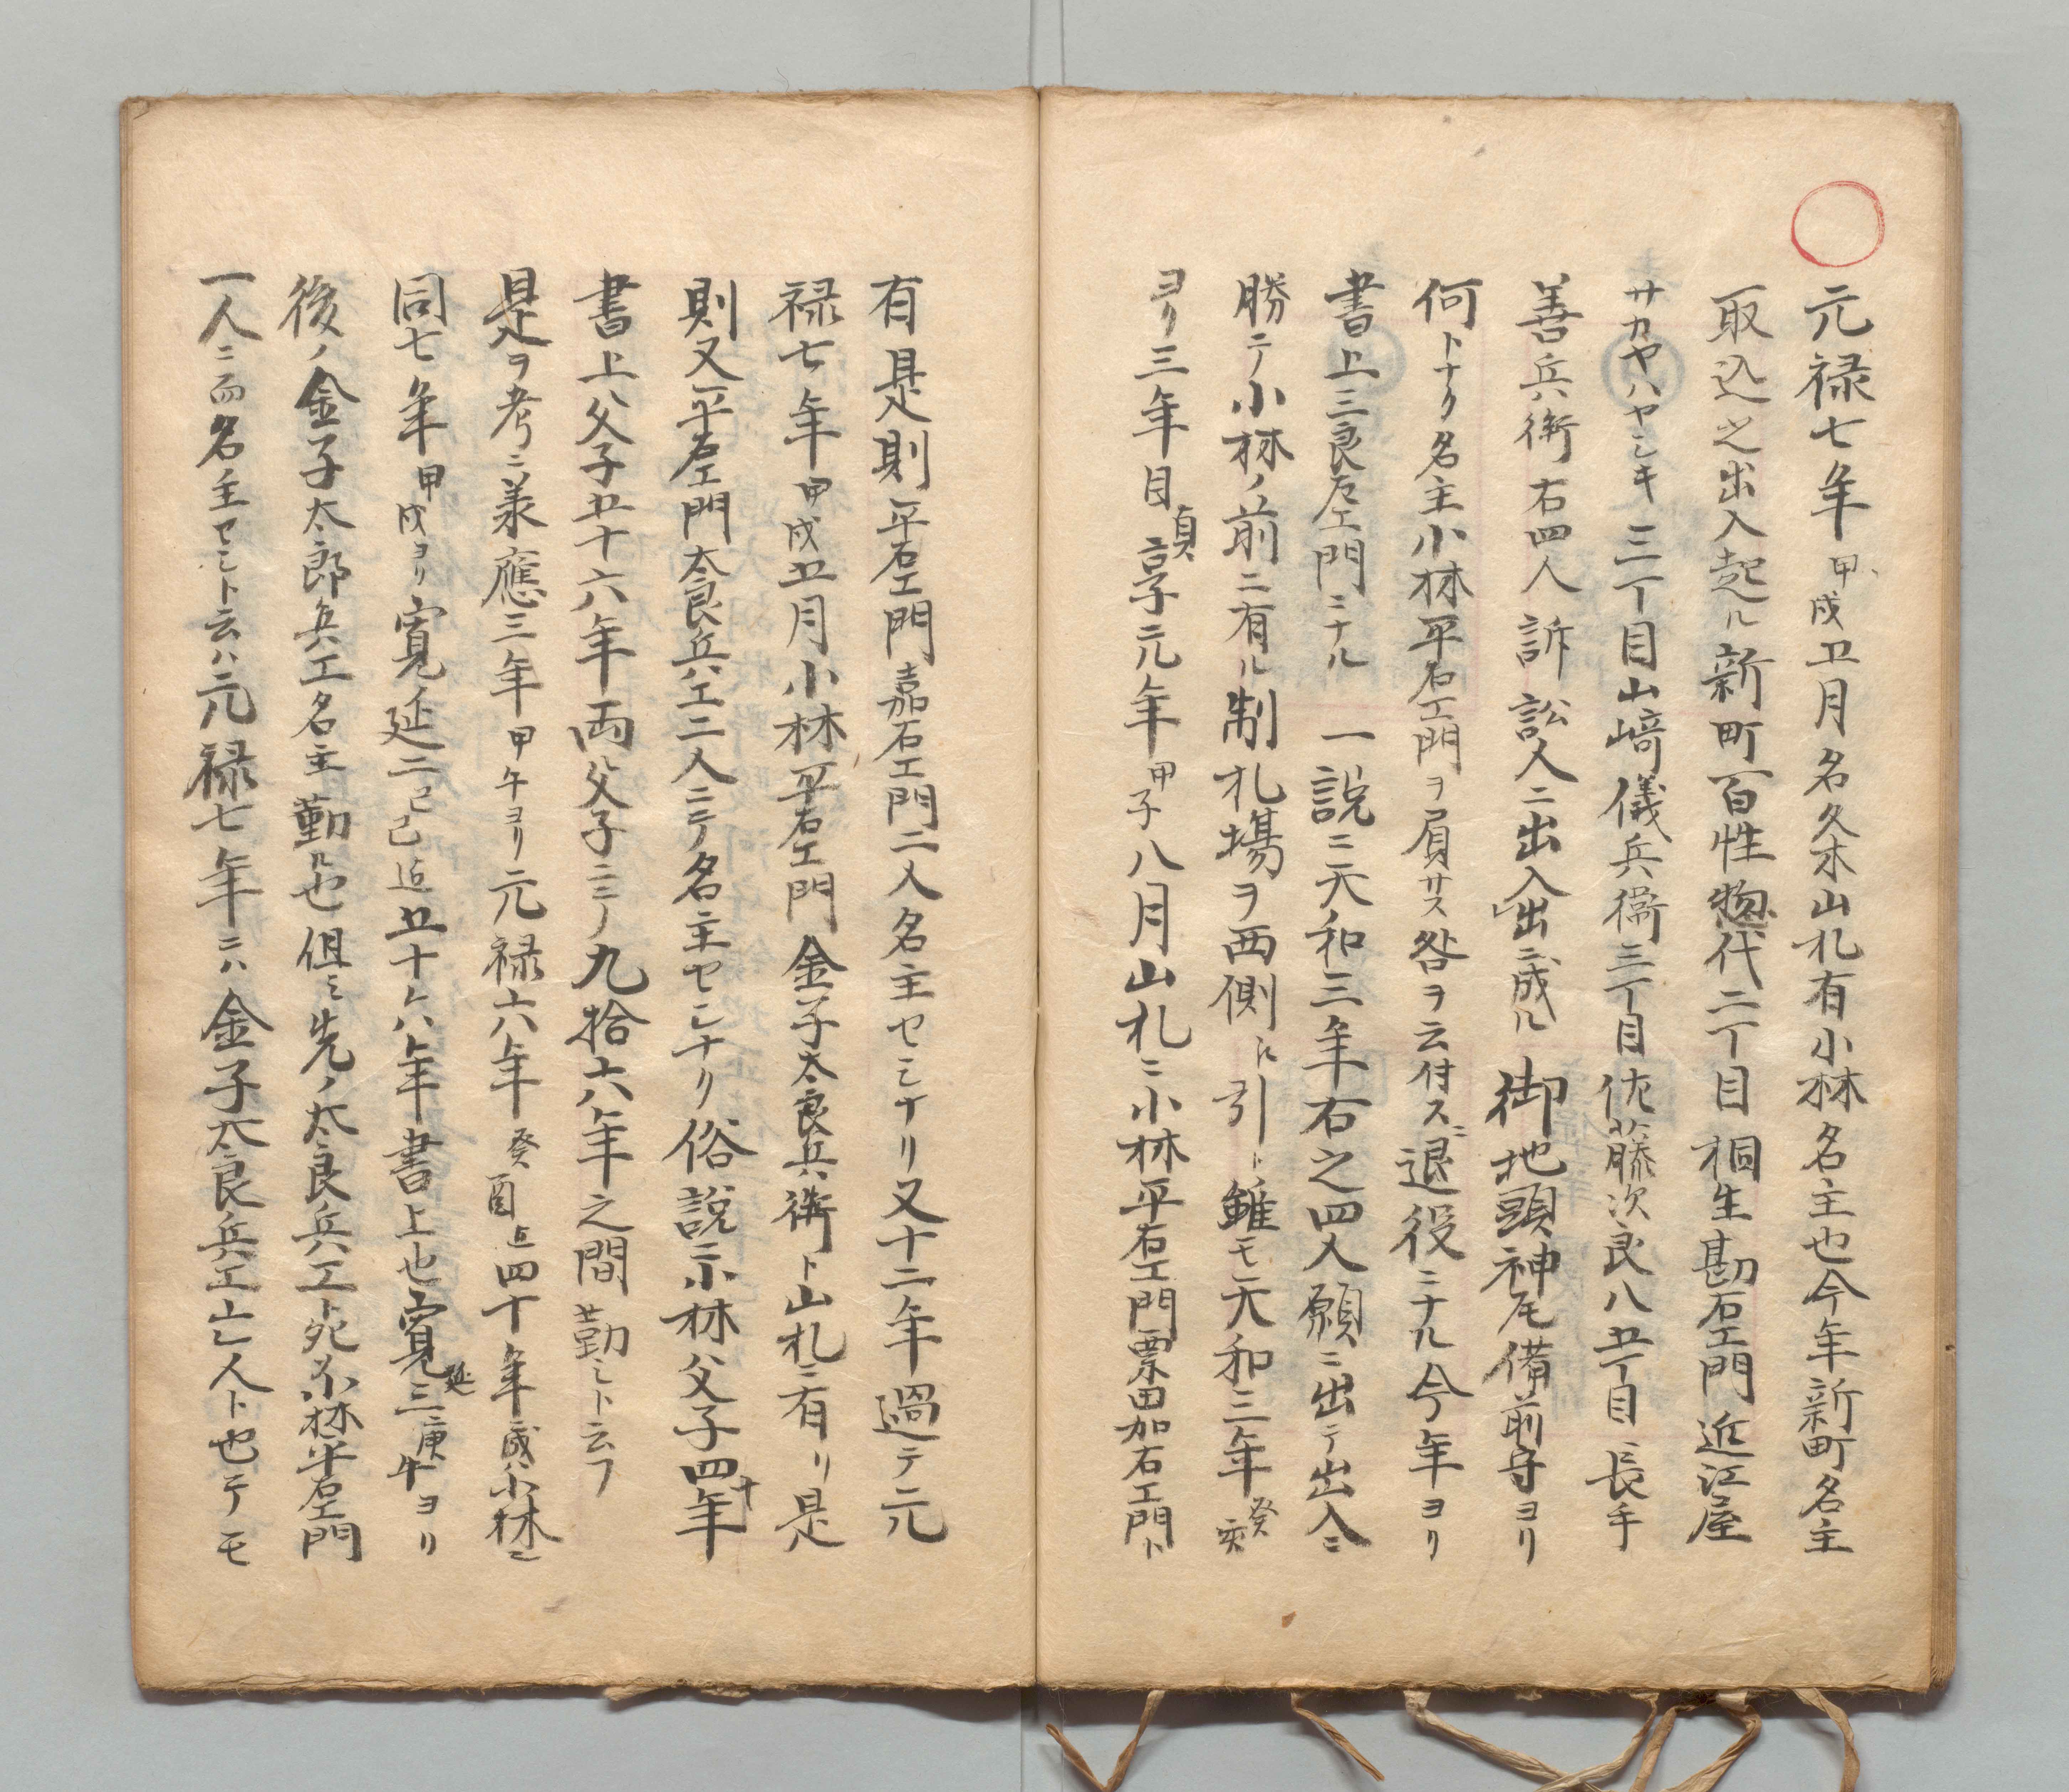 元禄七年甲戌五月名久木山札有小林名主也今年新町名主
取込之出入起ル新町百性惣代二丁目桐生勘右エ門近江屋
サカヤハヤシキ三丁目山﨑儀兵衛三丁目佐藤次良八五丁目長手
善兵衛右四人訴訟人ニ出入出ニ成ル御地頭神尾備前守ヨリ
何トナク名主小林平右エ門ヲ屓サス咎ヲ云付スニ退役ニナル今年ヨリ
書上三良左エ門ニナル一説ニ天和三年右之四人願ニ出テ出入ニ
勝テ小林ノ前ニ有ル制札場ヲ西側江引ト雖モ天和三年癸亥
ヨリ三年目貞享元年甲子八月山札ニ小林平右エ門粟田加右エ門ト
有是則平右エ門嘉右エ門二人名主セシナリ又十二年過テ元
禄七年甲戌五月小林平右エ門金子太良兵衛ト山札ニ有リ是
則又平右エ門太良兵エ二人ニテ名主セシナリ俗説ニ小林父子四十年
書上ハ父子五十六年両父子ニテノ九拾六年之間勤シト云フ
是ヲ考ニ承應三年甲午ヨリ元禄六年癸酉迄四十年成ハ小林ニ
同七年甲戌ヨリ寛延二己巳迄五十六年書上也寛延三庚午ヨリ
後ノ金子太郎兵エ名主勤ル也但シ先ノ太良兵エト死ス小林平右エ門
一人ニ而名主セシト云ハ元禄七年ニハ金子太良兵エ亡人ト也テモ